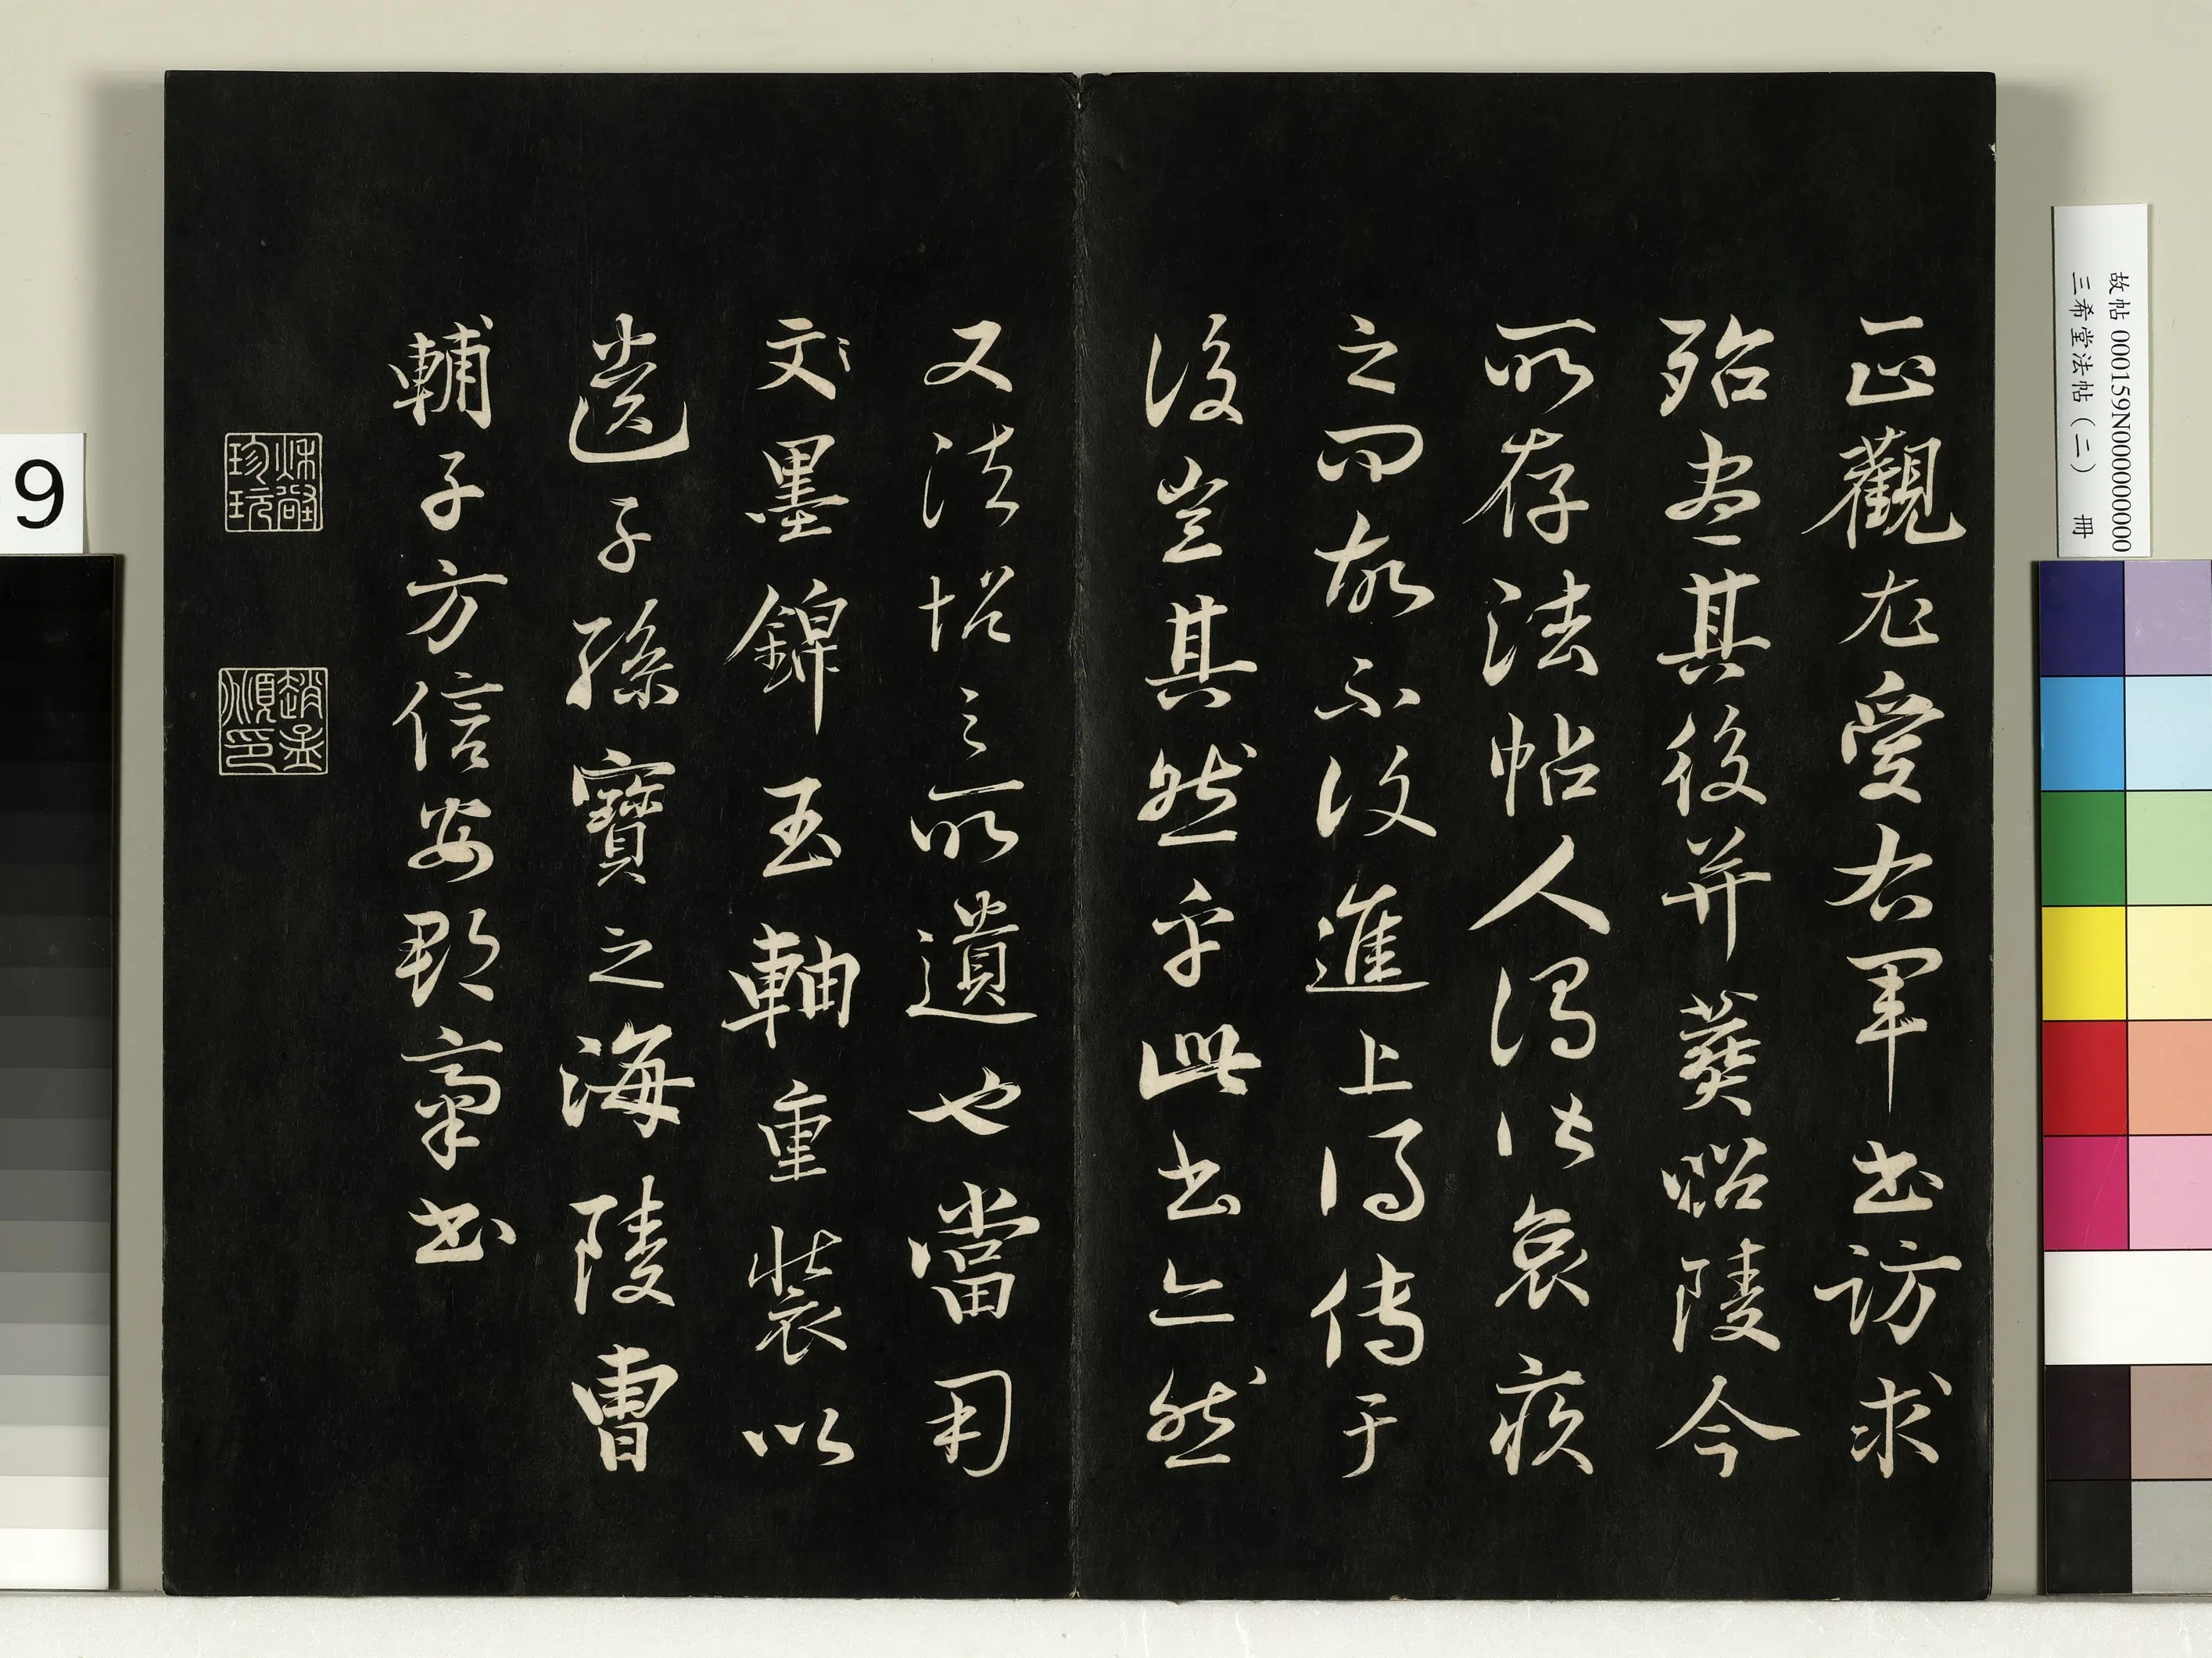 正觀尤愛右軍書訪求
殆盡其後并葬昭陵今
所存法帖人謂以哀疾
之問故不收進上得傳于
後豈其然乎此書亦然
又法帖之所遺也當用
文墨錦玉軸重裝以
遺子孫寶之海陵曹
輔子方信安郡齋書
故帖 000159N000000000
三希堂法帖(二) 冊
9